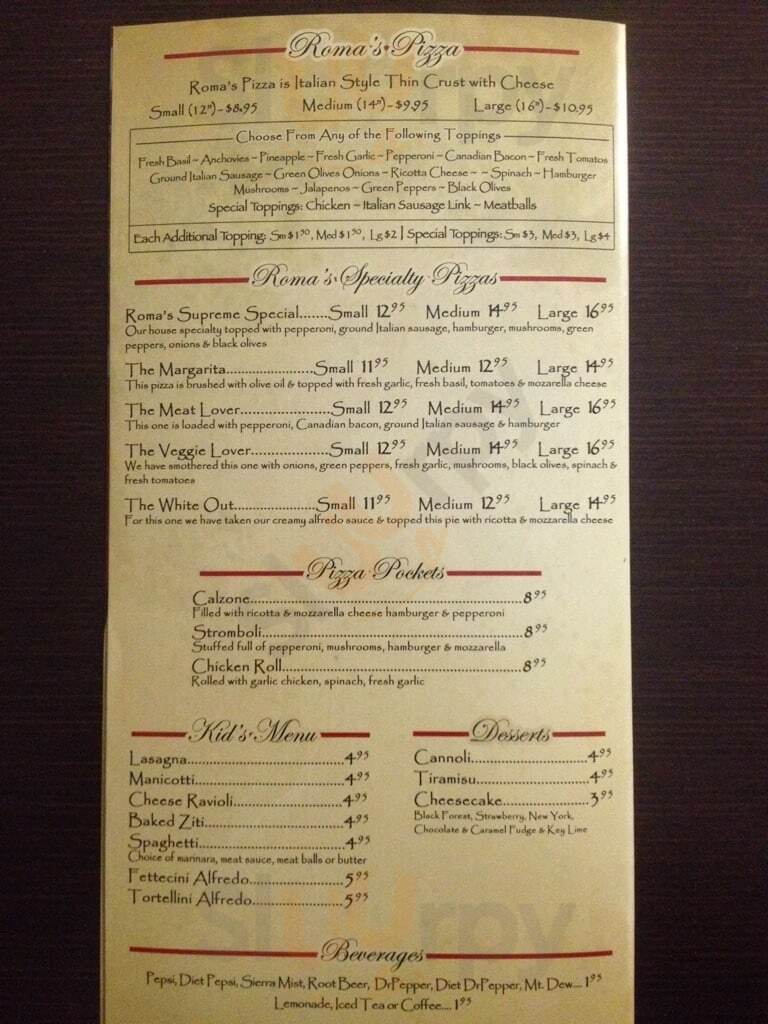 Roma's Pizza
Roma's Pizza is Italian Style Thin Crust with Cheese
Small (12") - $8.95 Medium (14") - $9.95 Large (16") - $10.95
Choose From Any of the Following Toppings
Fresh Basil ~ Anchovies ~ Pineapple ~ Fresh Garlic ~ Pepperoni ~ Canadian Bacon ~ Fresh Tomatos
Ground Italian Sausage ~ Green Olives Onions ~ Ricotta Cheese ~ ~ Spinach ~ Hamburger
Mushrooms ~ Jalapenos ~ Green Peppers ~ Black Olives
Special Toppings: Chicken ~ Italian Sausage Link ~ Meatballs
Each Additional Topping: Sm $1.50, Med $1.50, Lg $2 | Special Toppings: Sm $3, Med $3, Lg $4
Roma's Specialty Pizzas
Roma's Supreme Special.......Small 12.95 Medium 14.95 Large 16.95
Our house specialty topped with pepperoni, ground Italian sausage, hamburger, mushrooms, green
peppers, onions & black olives
The Margarita.......................Small 11.95 Medium 12.95 Large 14.95
This pizza is brushed with olive oil & topped with fresh garlic, fresh basil, tomatoes & mozarella cheese
The Meat Lover.......................Small 12.95 Medium 14.95 Large 16.95
This one is loaded with pepperoni, Canadian bacon, ground Italian sausage & hamburger
The Veggie Lover....................Small 12.95 Medium 14.95 Large 16.95
We have smothered this one with onions, green peppers, fresh garlic, mushrooms, black olives, spinach &
fresh tomatoes
The White Out.....................Small 11.95 Medium 12.95 Large 14.95
For this one we have taken our creamy alfredo sauce & topped this pie with ricotta & mozzarella cheese
Pizza Pockets
Calzone.......................................................8.95
Filled with ricotta & mozzarella cheese hamburger & pepperoni
Stromboli.....................................................8.95
Stuffed full of pepperoni, mushrooms, hamburger & mozzarella
Chicken Roll.................................................8.95
Rolled with garlic chicken, spinach, fresh garlic
Kid's Menu
Lasagna.......................................4.95
Manicotti.....................................4.95
Cheese Ravioli............................4.95
Baked Ziti...................................4.95
Spaghetti....................................4.95
Choice of marinara, meat sauce, meat balls or butter
Fettecini Alfredo........................5.95
Tortellini Alfredo.......................5.95
Desserts
Cannoli.............................4.95
Tiramisu...........................4.95
Cheesecake......................3.95
Black Forest, Strawberry, New York,
Chocolate & Caramel Fudge & Key Lime
Beverages
Pepsi, Diet Pepsi, Sierra Mist, Root Beer, DrPepper, Diet DrPepper, Mt. Dew.... 1.95
Lemonade, Iced Tea or Coffee.... 1.95